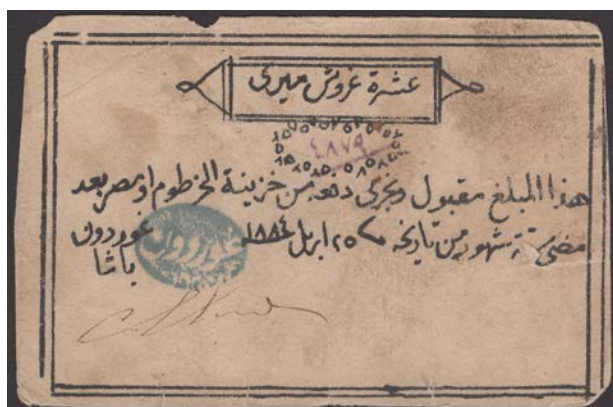 عشرة غروش ميرى
٤٨٧٩
هذا المبلغ مقبول ويجرى دفعه من خزينة الخرطوم او مصر بعد
مضى ستة شهور من تاريخه ٢٥ ابريل ١٨٨٤ غوردون
باشا